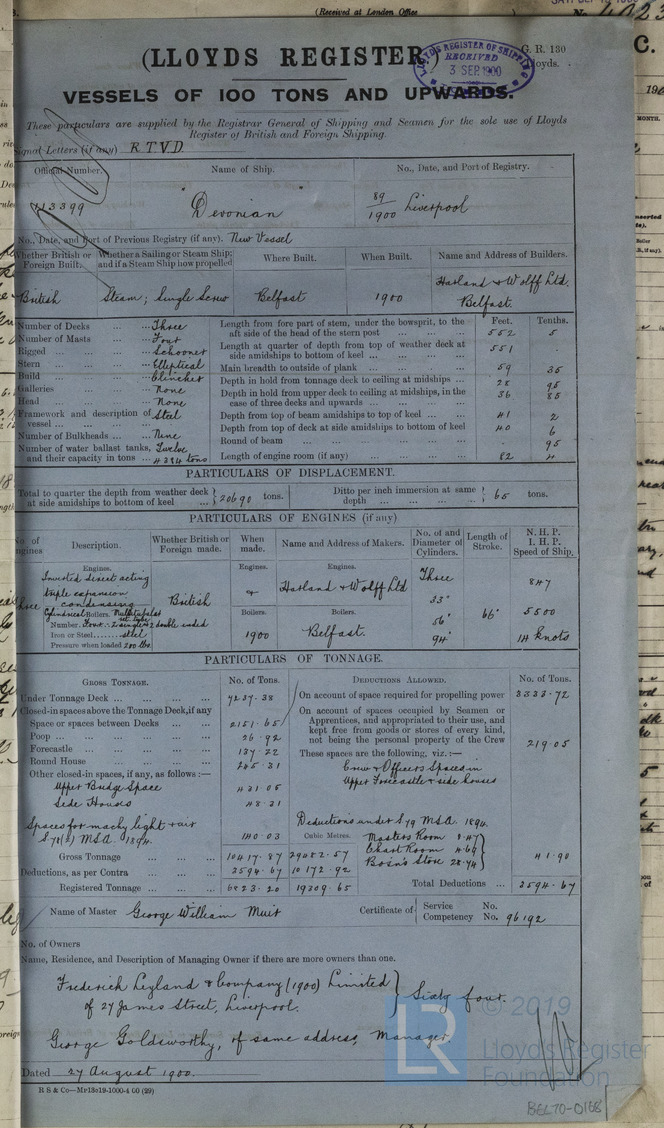 (Received at London Office
(LLOYDS REGISTER)
G. R. 130
Lloyds.
LLOYD'S REGISTER OF SHIPPING
RECEIVED
3 SEP 1900
VESSELS OF 100 TONS AND UPWARDS.
These particulars are supplied by the Registrar General of Shipping and Seamen for the sole use of Lloyds
Register of British and Foreign Shipping.
Signal Letters (if any) RTVD
Official Number. Name of Ship. No., Date, and Port of Registry.
113399 Devonian 89/1900 Liverpool
No., Date, and Port of Previous Registry (if any). New Vessel
Whether British or Foreign Built. Whether a Sailing or Steam Ship; and if a Steam Ship how propelled Where Built. When Built. Name and Address of Builders.
British Steam; Single Screw Belfast 1900 Harland & Wolff Ltd. Belfast.
Feet. Tenths.
Number of Decks ... ... Three
Number of Masts ... ... Four
Rigged ... ... ... Schooner
Stern ... ... ... Elliptical
Build ... ... ... Clincher
Galleries ... ... None
Head ... ... ... None
Framework and description of vessel ... ... Steel
Number of Bulkheads ... Nine
Number of water ballast tanks, Twelve
and their capacity in tons ... 4384 tons
Length from fore part of stem, under the bowsprit, to the
aft side of the head of the stern post ... ... 552 5
Length at quarter of depth from top of weather deck at
side amidships to bottom of keel ... ... 551 .
Main breadth to outside of plank ... ... 59 35
Depth in hold from tonnage deck to ceiling at midships ... 28 95
Depth in hold from upper deck to ceiling at midships, in the
case of three decks and upwards ... ... 36 85
Depth from top of beam amidships to top of keel ... 41 2
Depth from top of deck at side amidships to bottom of keel 40 6
Round of beam ... ... 95
Length of engine room (if any) ... ... 82 4
PARTICULARS OF DISPLACEMENT.
Total to quarter the depth from weather deck
at side amidships to bottom of keel ... 20690 tons.
Ditto per inch immersion at same
depth ... ... 65 tons.
PARTICULARS OF ENGINES (if any)
No. of Engines Description. Whether British or Foreign made. When made. Name and Address of Makers. No. of and Diameter of Cylinders. Length of Stroke. N. H. P. I. H. P. Speed of Ship.
Engines. Engines. Engines.
Inverted direct acting
triple expansion
condensing
British & Harland & Wolff Ltd Three 847
33"
Boilers. Boilers.
Number Four: 2 single & 2 double ended 56" 66" 5500
Iron or Steel ... steel 1900 Belfast. 94" 14 knots
Pressure when loaded 200 lbs.
PARTICULARS OF TONNAGE.
GROSS TONNAGE. No. of Tons. DEDUCTIONS ALLOWED. No. of Tons.
Under Tonnage Deck ... ... 7237.38
Closed-in spaces above the Tonnage Deck, if any
Space or spaces between Decks ... 2151.65
Poop ... ... ... 26.92
Forecastle ... ... 137.22
Round House ... ... 245.31
Other closed-in spaces, if any, as follows :—
Upper Bridge Space 431.05
Side Houses 48.31
Spaces for machy light & air
S 78(2) MSA. 1894. 140.03
Gross Tonnage ... ... 10417.87 29482.57
Deductions, as per Contra ... 3594.67 10172.92
Registered Tonnage ... ... 6823.20 19309.65
On account of space required for propelling power 3333.72
On account of spaces occupied by Seamen or
Apprentices, and appropriated to their use, and
kept free from goods or stores of every kind,
not being the personal property of the Crew 219.05
These spaces are the following, viz. :—
Crew & Officers Spaces in
Upper Forecastle & side houses
Deductions under S 79 MSA. 1894.
Cubic Metres.
Masters Room 8.47
Chart Room 4.69
Bosn's Store 28.74
41.90
Total Deductions ... 3594.67
Name of Master George William Muir
Certificate of Service No.
Competency No. 96192
No. of Owners
Name, Residence, and Description of Managing Owner if there are more owners than one.
Frederick Leyland & Company (1900) Limited
of 27 James Street, Liverpool. } Sixty four.
George Goldsworthy, of same address, Manager.
Dated 27 August 1900.
R S & Co—Mr13819-1000-4 00 (29)
LR
© 2019
Lloyd's Register
Foundation
BEL70-0168